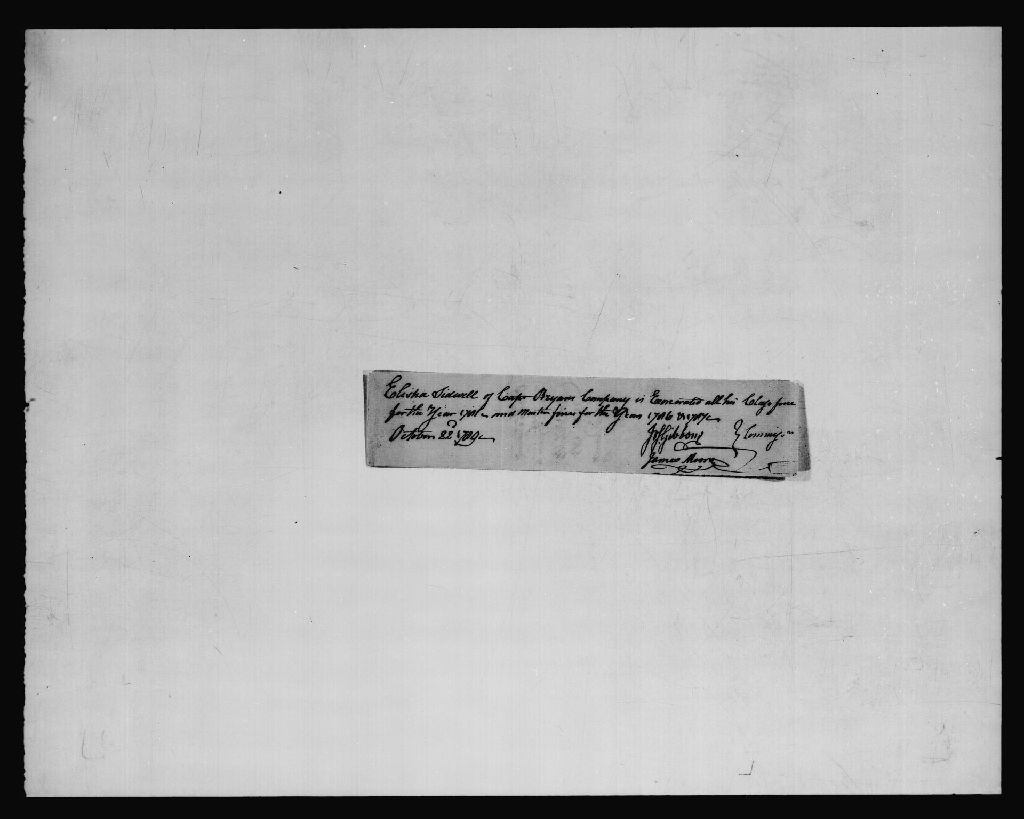 Elisha Sidwell of Capt Bryans Company is Exonerated all his Class fines
for the Year 1781 - and Muster fines for the Years 1786 & 1787 -
October 22d 1789 -
Jas Gibbons } Commiss
James Moore